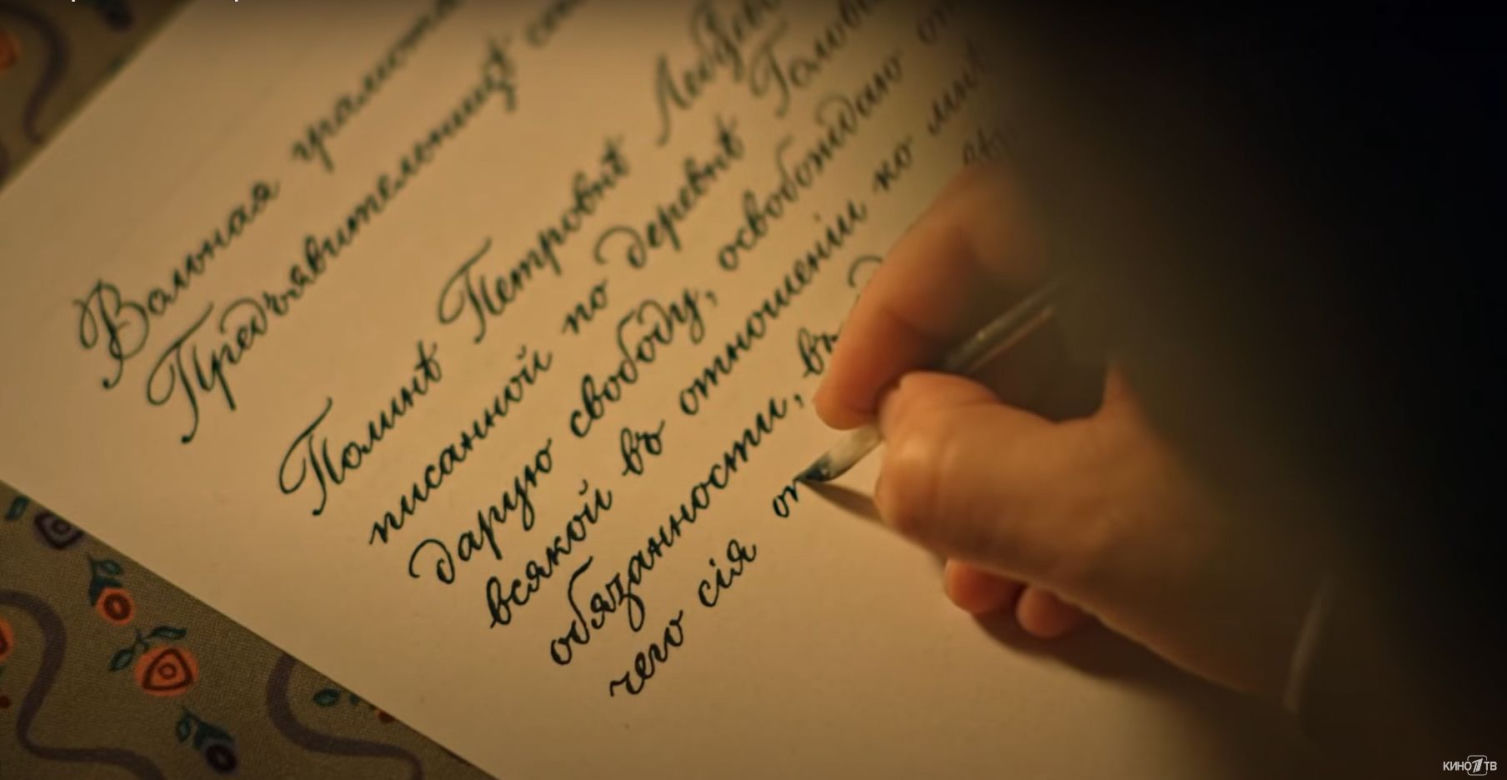 Вольная грамота
Предъявительницѣ
Полинѣ Петровнѣ
писанной по деревнѣ
дарую свободу, освобождаю
всякой въ отношеніи ко мнѣ
обязанности, въ
чего сія
КИНО ТВ